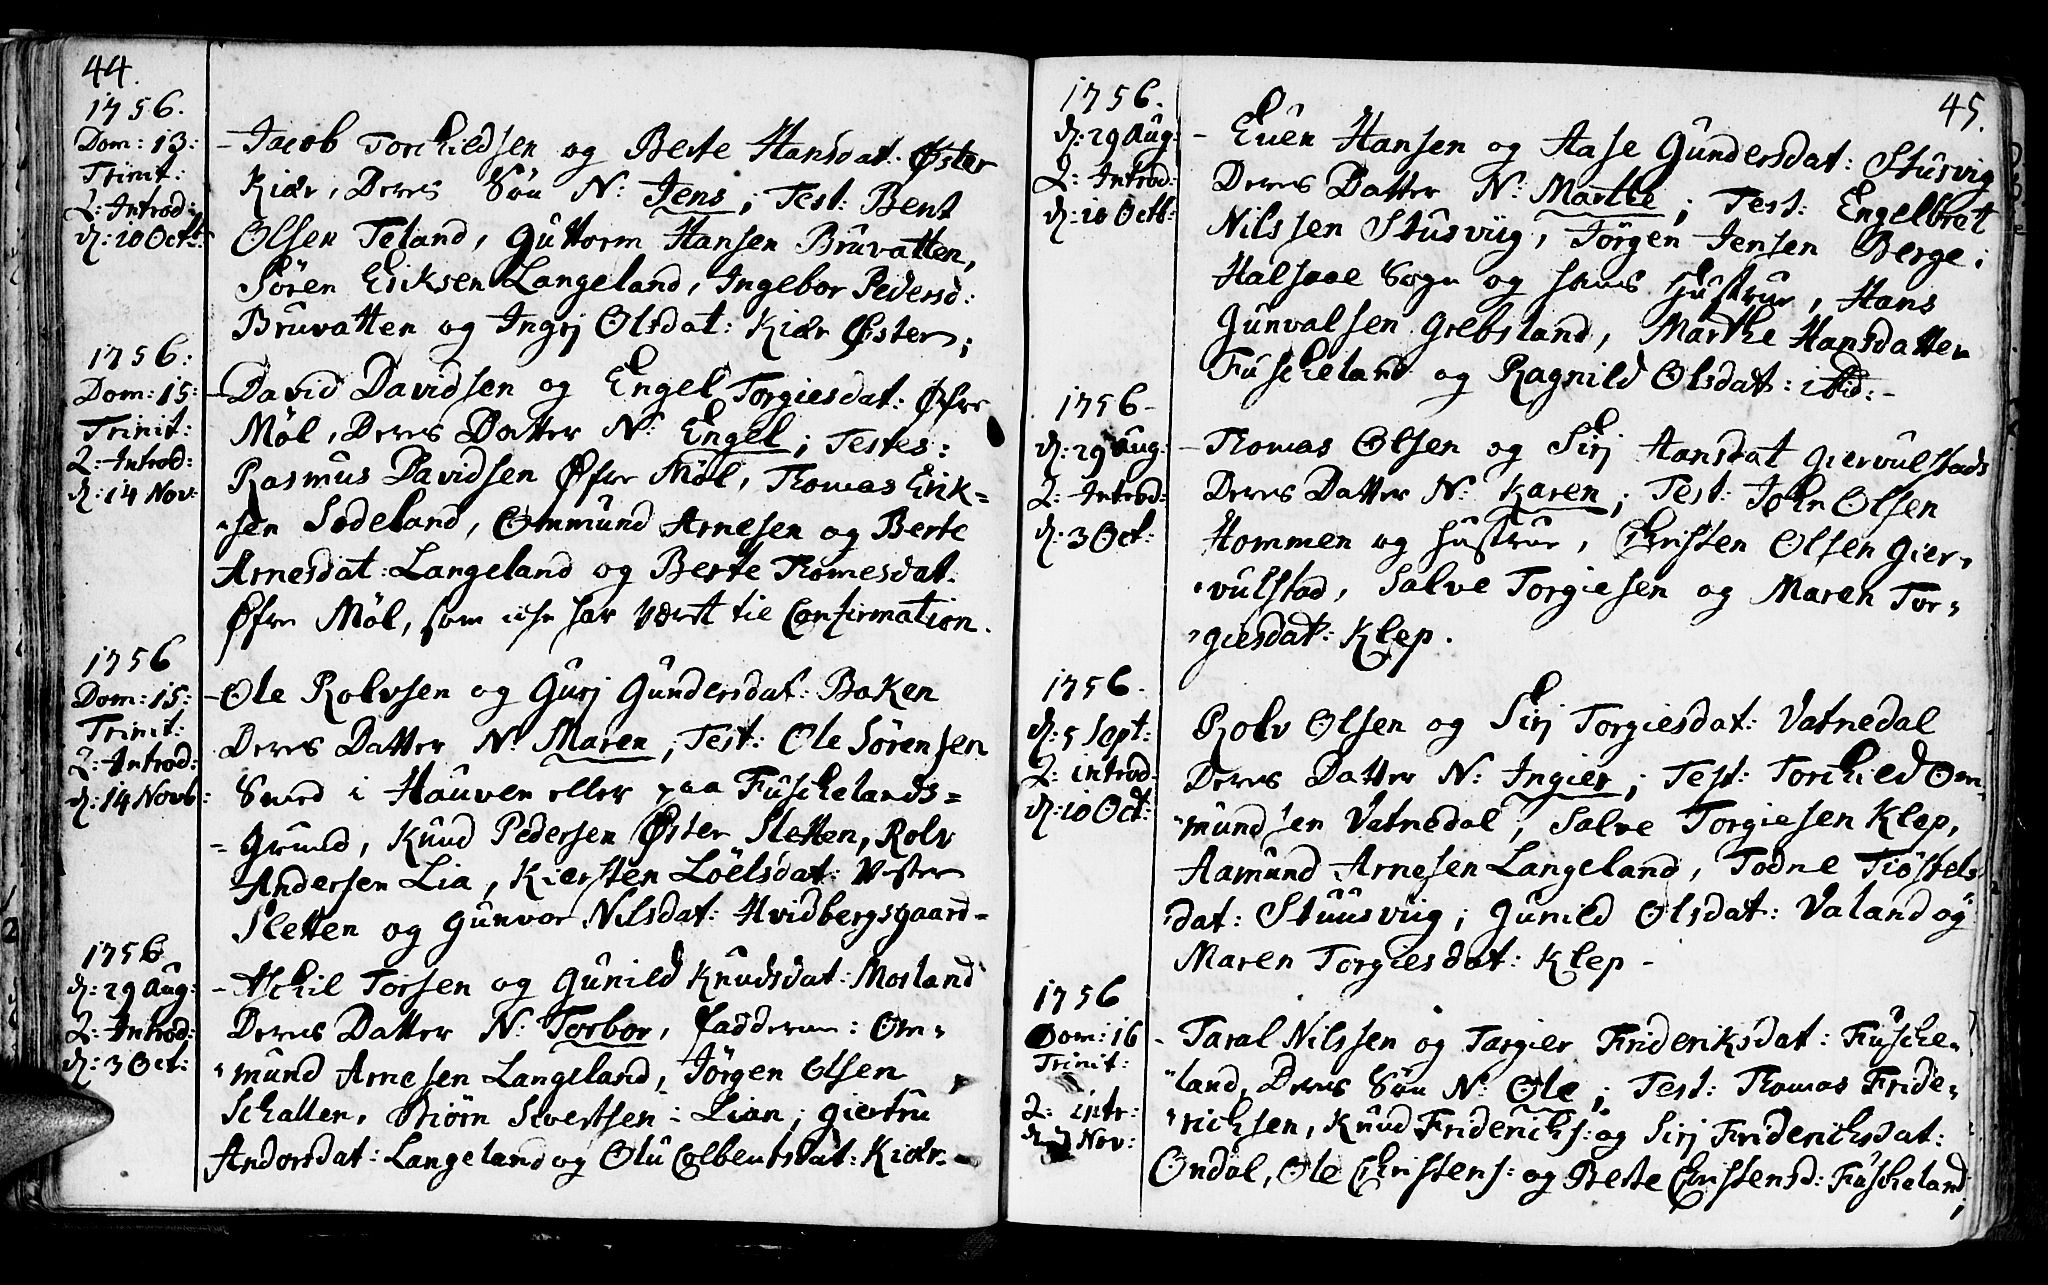 44.
1756.
Dom: 13:
Trinit:
2: Introd:
d: 10 Octb:
- Jacob Torchildsen og Berte Hansdat: Øster
Kiær, Deres Søn N: Jens; Test: Bent
Olsen Teland, Guttorm Hansen Bruvatten,
Sören Eriksen Langeland, Ingebor Pedersd:
Bruvatten og Ingrj Olsdat: Kiær Øster;
1756:
Dom: 15:
Trinit:
2: Introd:
d: 14 Nov:
- David Davidsen og Engel Torgiesdat: Øfre
Möl, Deres Datter N: Engel; Testes:
Rasmus Davidsen Øfre Möl, Thomas Erik=
"sen Sodeland, Ommund Arnesen og Berte
Arnesdat: Langeland og Berte Thomesdat.
Øfre Möl, som icke har Været til Confirmation.
1756
Dom: 15:
Trinit:
2: Introd:
d: 14 Novb:
- Ole Rolvsen og Gurj Gundersdat: Baken
Deres Datter N: Maren; Test: Ole Sörensen
Smed i Hauven eller paa Fuschelands=
= Grund, Knud Pedersen Øster Sletten, Rolv
Andersen Lia, Kiersten Loëlsdat: Vester
Sletten og Gunvor Nilsdat: Hvidbergsgaard=
1756
d: 29 Aug:
2: Introd:
d: 3 Oct:
- Aschil Torsen og Gunild Knudsdat: Mosland
Deres Datter N: Torbor, Fadderne: Om"
"mund Arnesen Langeland, Jörgen Olsen
Schallen, Biörn Sivertsen: Lian; Giertru
Andorsdat: Langeland og Olu Colbentsdat: Kiær.
45.
1756.
d: 29 Aug:
2: Introd:
d: 10 Octb:
- Even Hansen og Aase Gundersdat: Stusvig
Deres Datter N: Marthe; Test: Engelbret
Nilssen Stusviig, Jörgen Jensen Berge i
Halsaae Sogn og hans Hustrue, Hans
Gunvalsen Grebsland, Marthe Hansdatter
Fuscheland og Ragnild Olsdat: ibid: -
1756-
d: 29 Aug:
2: Introd:
d: 3 Oct:
- Thomas Olsen og Sirj Hansdat Giervulstads
Deres Datter N: Karen; Test: John Olsen
Hommen og Hustrue, Christen Olsen Gier"
"vulstad, Salve Torgiesen og Maren Tor"
"giesdat: Klep.
1756.
d: 5 Sept:
2: introd:
d: 10 Oct:
Rolv Olsen og Sirj Torgiesdat: Vatnedal
Deres Datter N: Ingier; Test: Torchild Om"
"mundsen Vatnedal, Salve Torgiesen Klep,
Aamund Arnesen Langeland, Todne Tiöstels
"dat: Stuusviig; Gunild Olsdat: Valand og
Maren Torgiesdat: Klep -
1756
Dom: 16
Trinit:
2: intr:
d: 7 Nov:
- Taral Nilssen og Targier Frideriksdat: Fusche"
"land, Deres Søn N: Ole; Test: Thomas Fride"
"richsen, Knud Friderichs: og Sirj Friderichsdat:
Ondal, Ole Christens: og Berte Christensd: Fuscheland;